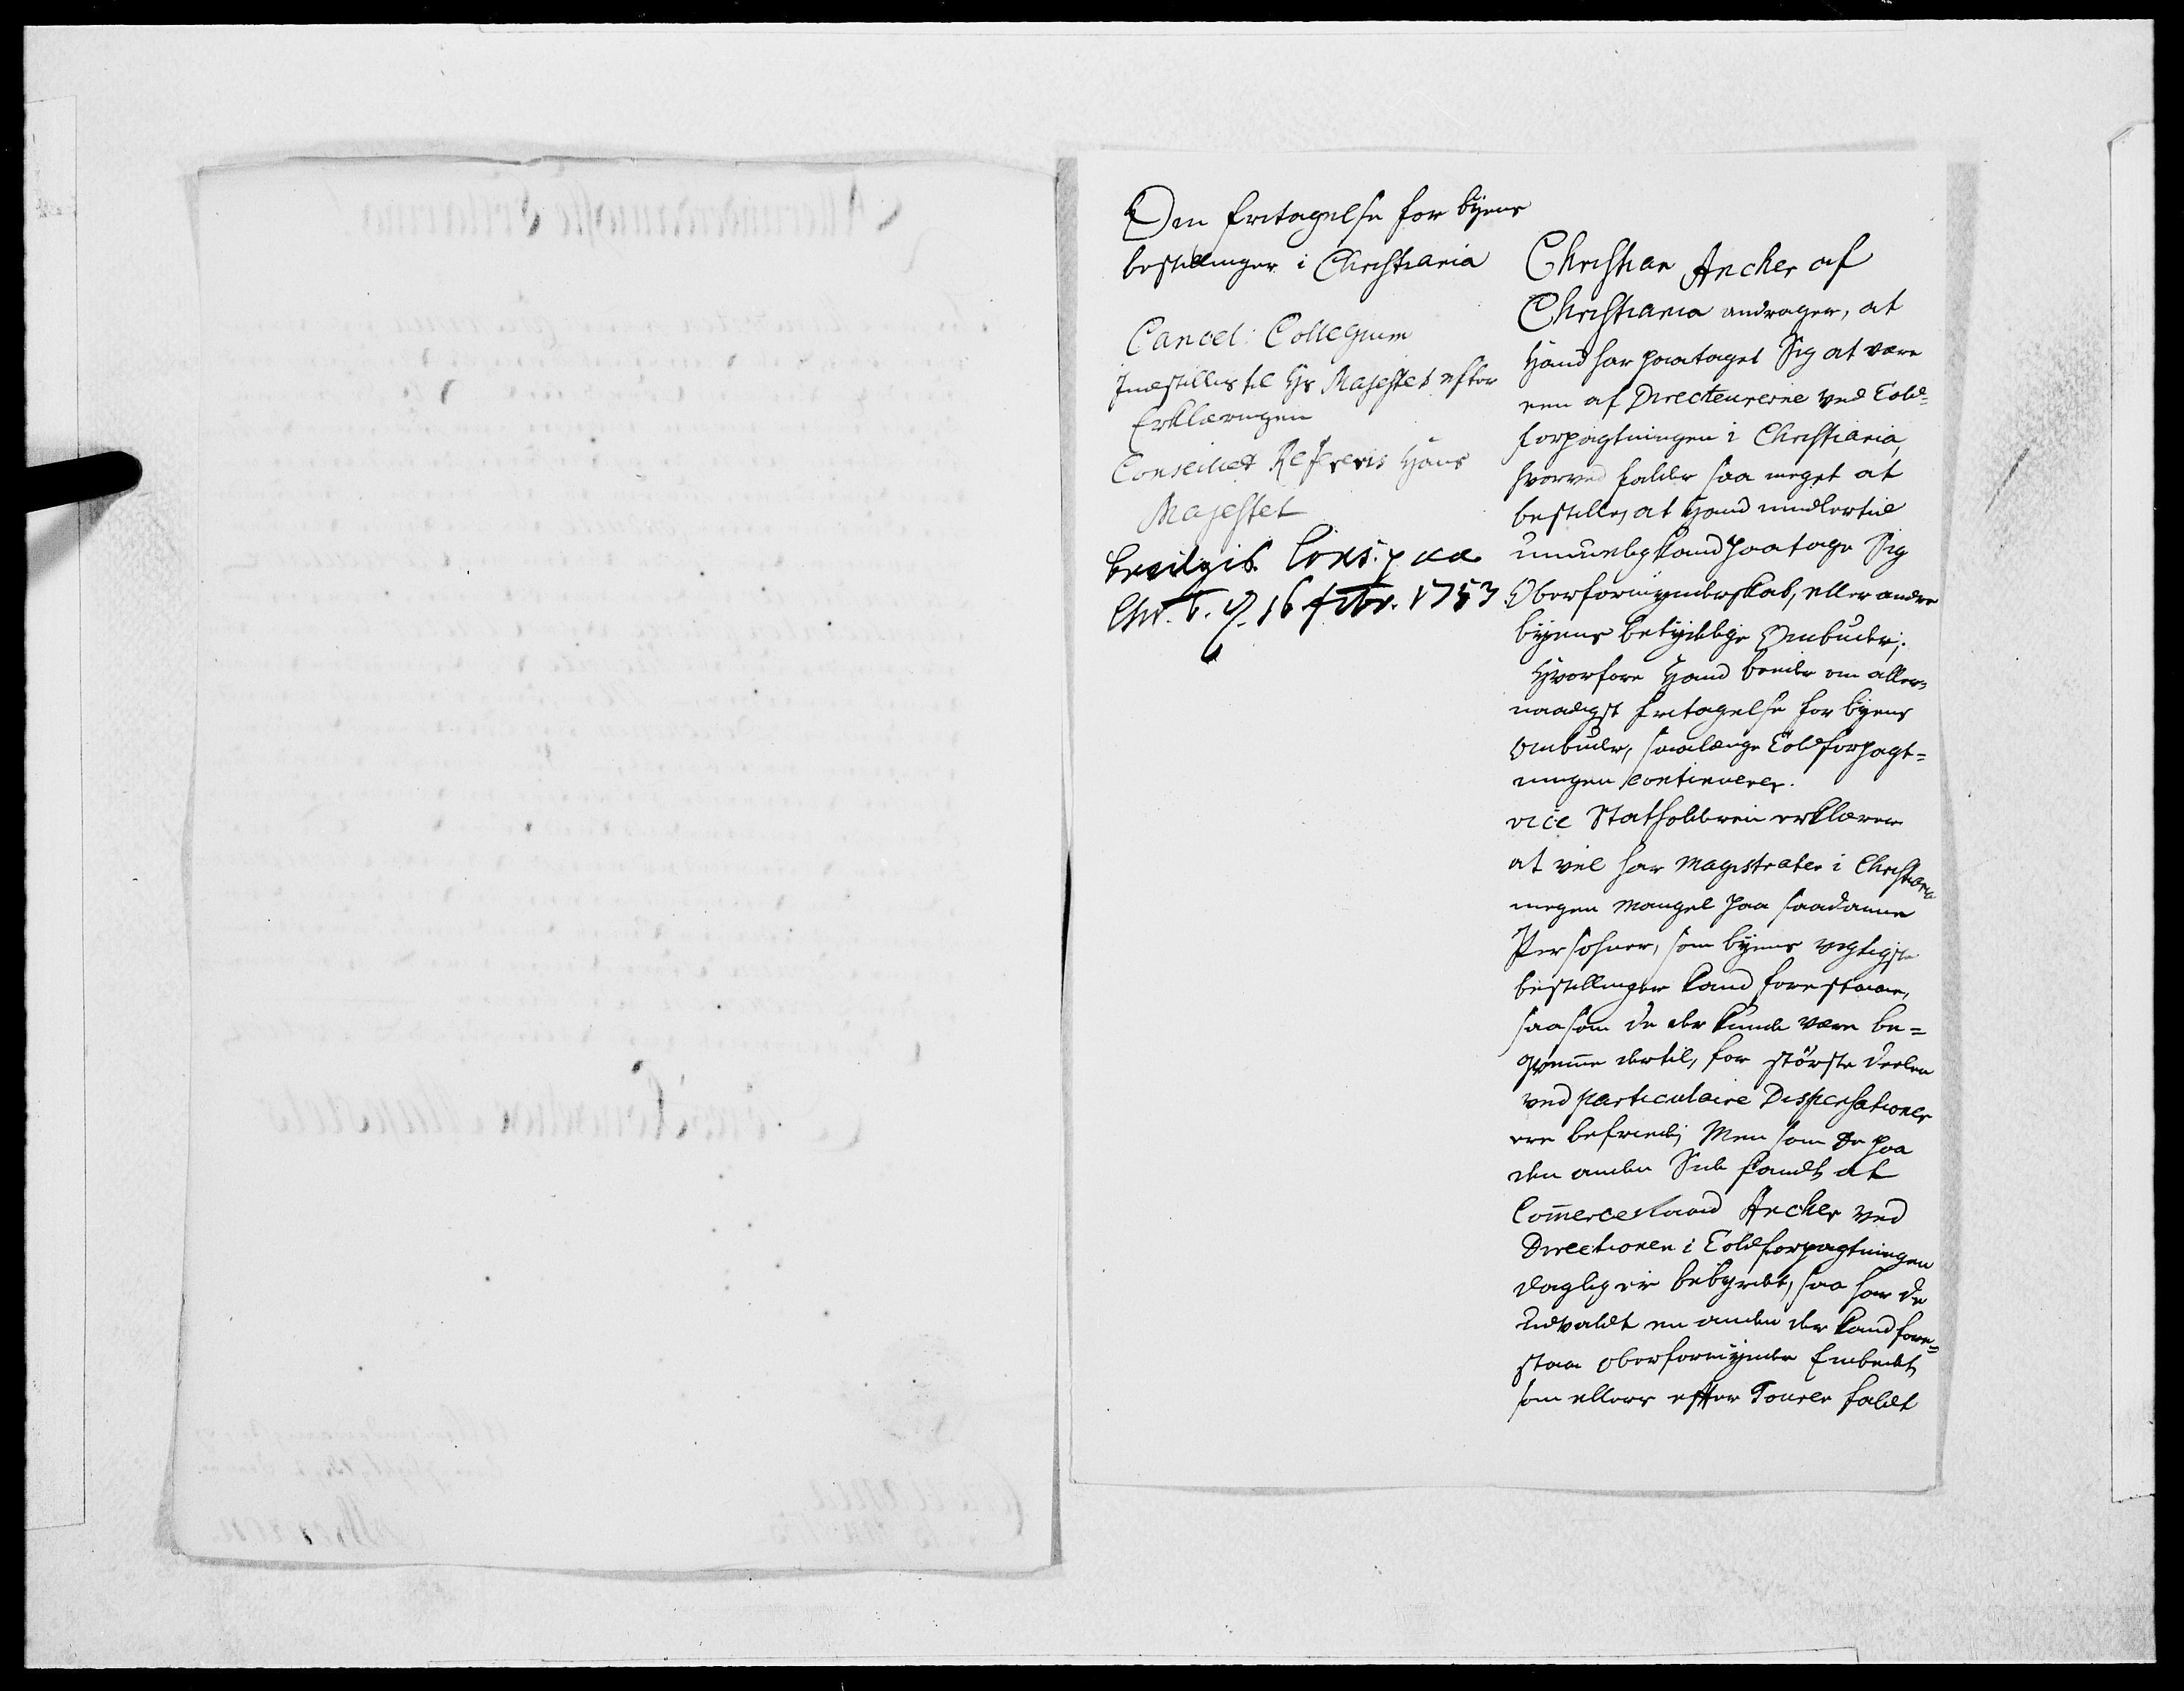 Om fritagelse for byens
bestillinger i Christiania
Cancel: Collegium
Indstilles til Hs Majestet efter
Erklæringen
Conseillet Refereris Hans
Majestet
bevilgis. Cons. paa
Chr. b. d. 16 febr. 1753.
Christian Ancher af
Christiania andrager, at
Hand har paataget Sig at være
een af Directeurerne ved Told-
forpagtningen i Christiania,
hvorved falder saa meget at
bestille, at Hand imidlertid
umuelig kand paatage Sig
Oberformynderskab, eller andre
byens betydelige Ombuder;
Hvorfore Hand beeder om aller-
naadigst fritagelse for byens
Ombuder, saalænge Toldforpagt-
ningen continuerer.
vice Statholderen erklærer
at vel har Magistraten i Christiania
megen Mangel paa saadanne
Persohner, som byens vigtigste
bestillinger kand forestaae,
saasom de der kunde være be-
qvemme dertil, for største deelen
ved particulaire Dispensationer
ere befriede; Men som de paa
den anden Side fandt at
Commerceraad Ancher ved
Directionen i Toldforpagtningen
daglig er bebyrdet, saa har de
Udvaldt en anden der kand fore-
staa Oberformynder Embedet,
som ellers efter Touren faldt